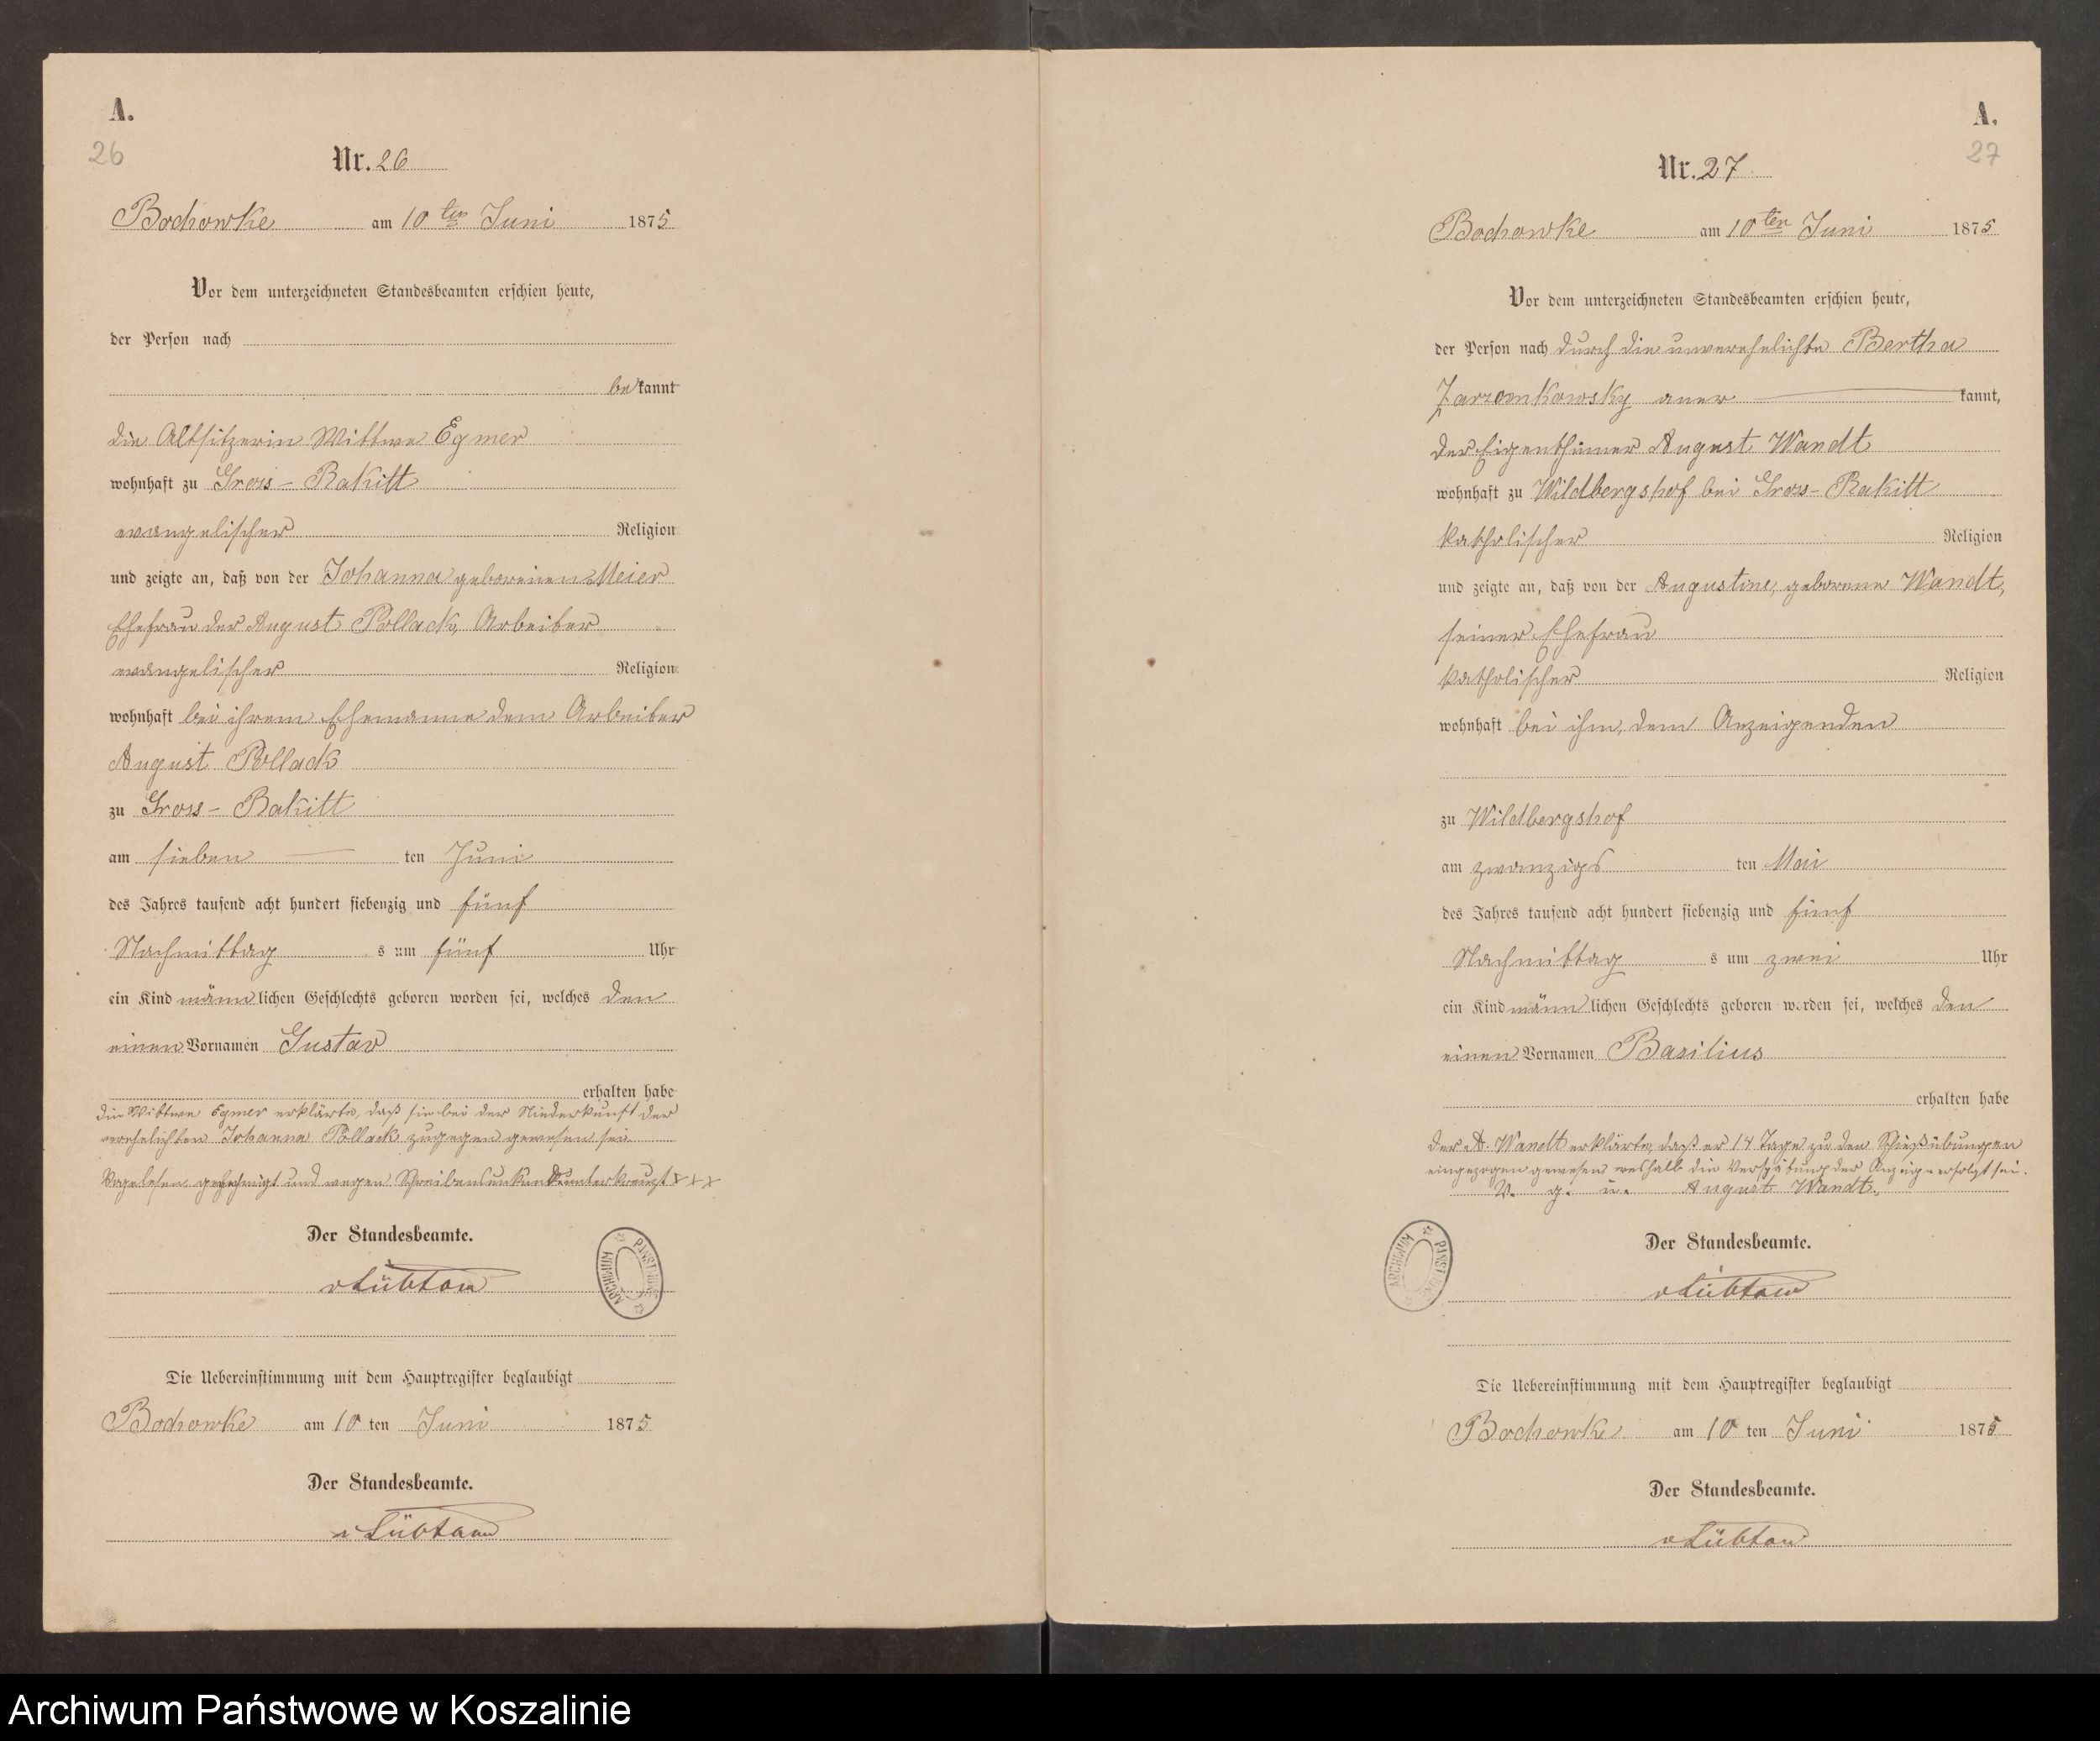 A.
26
Nr. 26
Bochowke am 10ten Juni 1875
Vor dem unterzeichneten Standesbeamten erschien heute,
der Person nach
bekannt
die Altsitzerin Wittwe Egmer
wohnhaft zu Gross-Rakitt
evangelischer Religion
und zeigte an, daß von der Johanna geborenen Meier
Ehefrau des August Pollack, Arbeiter
evangelischer Religion
wohnhaft bei ihrem Ehemanne dem Arbeiter
August Pollack
zu Gross-Rakitt
am sieben ten Juni
des Jahres tausend acht hundert siebenzig und fünf
Nachmittag s um fünf Uhr
ein Kind männlichen Geschlechts geboren worden sei, welches den
einen Vornamen Gustav
erhalten habe
die Wittwe Egmer erklärte, daß sie bei der Niederkunft der
verehelichten Johanna Pollack zugegen gewesen sei.
Vorgelesen genehmigt und wegen Schreibensunkunde unterkreuzt XXX
Der Standesbeamte.
vLübtow
ARCHIWUM PAŃSTWOWE
Die Uebereinstimmung mit dem Hauptregister beglaubigt
Bochowke am 10 ten Juni 1875
Der Standesbeamte.
vLübtow
A.
27
Nr. 27
Bochowke am 10ten Juni 1875
Vor dem unterzeichneten Standesbeamten erschien heute,
der Person nach durch die unverehelichte Bertha
Zarzonkowsky aner kannt,
der Eigenthümer August Wandt
wohnhaft zu Wildbergshof bei Gross-Rakitt
katholischer Religion
und zeigte an, daß von der Augustine, geborene Wandt,
seiner Ehefrau
katholischer Religion
wohnhaft bei ihm, dem Anzeigenden
zu Wildbergshof
am zwanzigs ten Mai
des Jahres tausend acht hundert siebenzig und fünf
Nachmittag s um zwei Uhr
ein Kind männlichen Geschlechts geboren worden sei, welches den
einen Vornamen Basilius
erhalten habe
der A. Wandt erklärte, daß er 14 Tage zu den Schießübungen
eingezogen gewesen weshalb die Verspätung der Anzeige erfolgt sei.
V. g. u. August Wandt.
Der Standesbeamte.
vLübtow
ARCHIWUM PAŃSTWOWE
Die Uebereinstimmung mit dem Hauptregister beglaubigt
Bochowke am 10 ten Juni 1875
Der Standesbeamte.
vLübtow
Archiwum Państwowe w Koszalinie